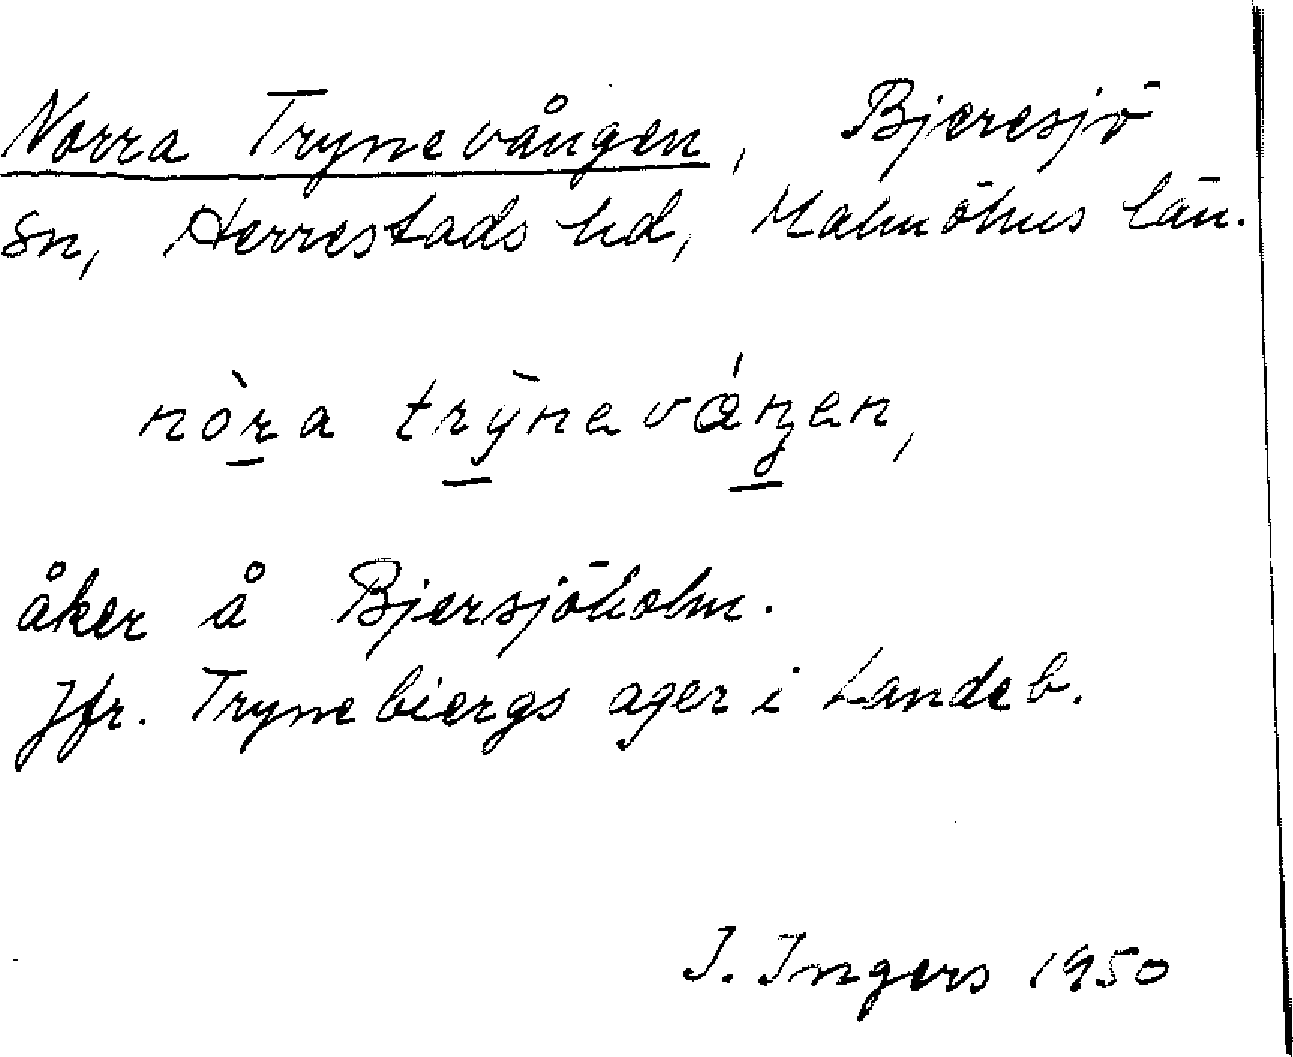 Norra Trynevången, Bjeresjö
sn, Herrestads hd, Malmöhus län.
nòra trỳneváŋen,
åker å Bjersjöholm.
Jfr. Trynebiergs ager i Landeb.
I. Ingers 1950